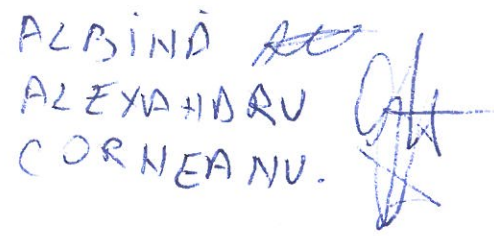 ALBINĂ
ALEXANDRU
CORNEANU.